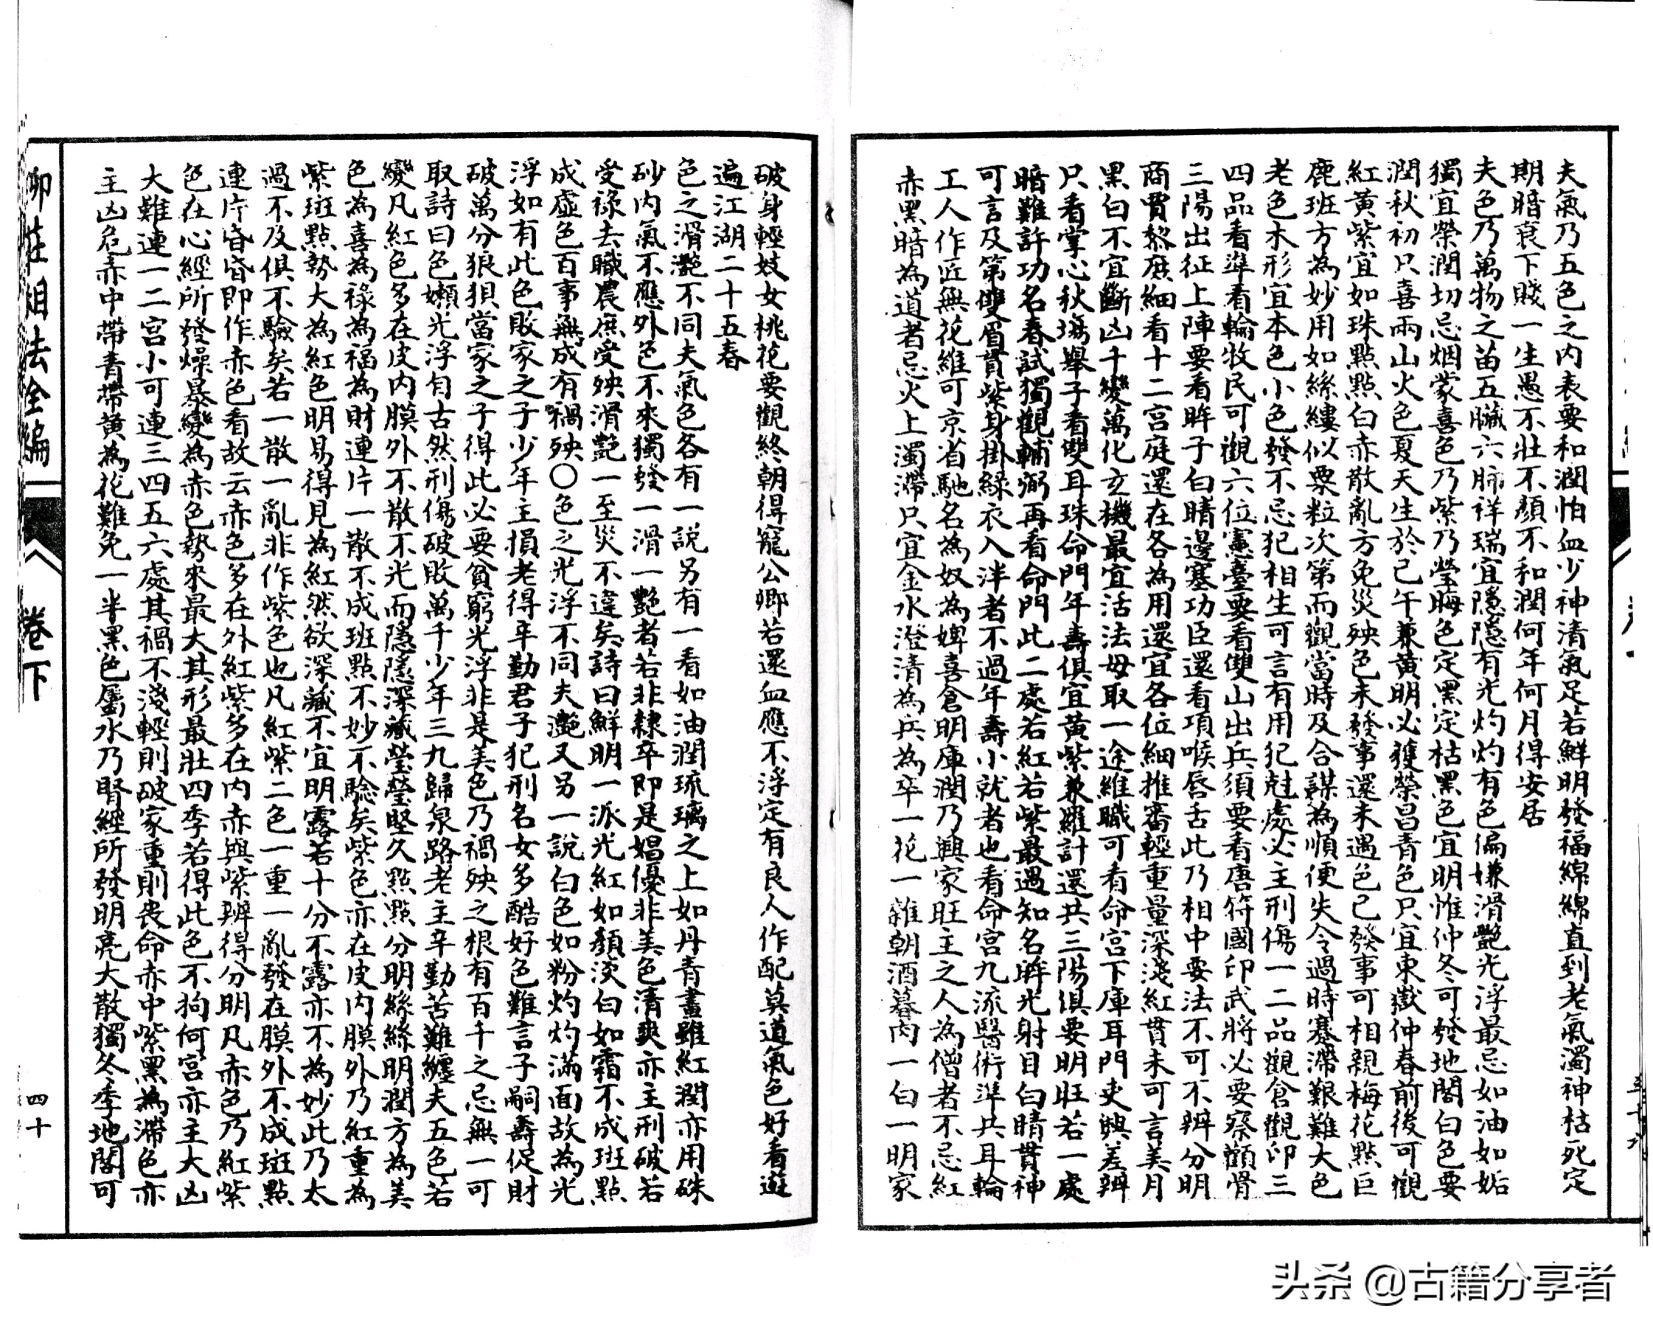 夫氣乃五色之內表要和潤怕血少神清氣足若鮮明發福綿綿直到老氣濁神枯死定
期暗衰下賤一生愚不壯不顏不和潤何年何月得安居
夫色乃萬物之苗五臟六腑祥瑞宜隱隱有光灼灼有色偏嫌滑艷光浮最忌如油如垢
獨宜榮潤切忌烟蒙喜色乃紫乃瑩晦色定黑定枯黑色宜明惟仲冬可發地閣白色要
潤秋初只喜兩山火色夏天生於已午兼黃明必獲榮昌青色只宜東嶽仲春前後可觀
紅黃紫宜如珠點點白赤散亂方免災殃色未發事還未遇色已發事可相親梅花點巨
鹿班方為妙用如絲縷似粟粒次第而觀當時及合謀為順便失令過時蹇滯艱難大色
老色木形宜本色小色發不忌犯相生可言有用犯尅處必主刑傷一二品觀倉觀印三
四品看準看輪牧民可觀六位憲臺要看雙山出兵須要看唐符國印武將必要察顴骨
三陽出征上陣要看眸子白睛邊塞功臣還看項喉唇舌此乃相中要法不可不辨分明
商賈黎庶細看十二宮庭還在各為用還宜各位細推審輕重量深淺紅貫未可言美月
黑白不宜斷凶千變萬化玄機最宜活法毋取一途維職可看命宮下庫耳門吏興差辨
只看掌心秋塲舉子看雙耳珠命門年壽俱宜黃紫兼羅計還共三陽俱要明旺若一處
暗難許功名春試獨觀輔弼再看命門此二處若紅若紫最遇知名眸光射目白睛貫神
可言及第雙眉貫紫身掛綠衣入泮者不過年壽小就者也看命宮九流醫術準共耳輪
工人作匠無花維可京省馳名為奴為婢喜倉明庫潤乃興家旺主之人為僧者不忌紅
赤黑暗為道者忌火上濁滯只宜金水澄清為兵為卒一花一雜朝酒暮肉一白一明家
破身輕妓女桃花要觀終朝得寵公卿若還血應不浮定有良人作配莫道氣色好看遊
遍江湖二十五春
色之滑艷不同夫氣色各有一說另有一看如油潤琉璃之上如丹青畫雖紅潤亦用硃
砂內氣不應外色不來獨發一滑一艷者若非隸卒即是娼優非美色清爽亦主刑破若
受祿去職農庶受殃滑艷一至災不違矣詩曰鮮明一派光紅如顏淡白如霜不成斑點
成虛色百事無成有禍殃○色之光浮不同夫艷又另一說白色如粉灼灼滿面故為光
浮如有此色敗家之子少年主損老得辛勤君子犯刑名女多酷好色難言子嗣壽促財
破萬分狼狽當家之子得此必要貧窮光浮非是美色乃禍殃之根有百千之忌無一可
取詩曰色嫩光浮自古然刑傷破敗萬千少年三九歸泉路老主辛勤苦難纏夫五色若
變凡紅色多在皮內膜外不散不光而隱隱深藏瑩瑩堅久點點分明絲絲明潤方為美
色為喜為祿為福為財連片一散不成班點不妙不驗矣紫色亦在皮內膜外乃紅重為
紫斑點勢大為紅色明易得見為紅然欲深藏不宜明露若十分不露亦不為妙此乃太
過不及俱不驗矣若一散一亂非作紫色也凡紅紫二色一重一亂發在膜外不成斑點
連片昏昏即作赤色看故云赤色多在外紅紫多在內赤與紫辨得分明凡赤色乃紅紫
色在心經所發燥暴變為赤色勢來最大其形最壯四季若得此色不狗何宮亦主大凶
大難連一二宮小可連三四五六處其禍不淺輕則破家重則喪命赤中紫黑為滯色亦
主凶危赤中帶青帶黃為花難免一半黑色屬水乃腎經所發明亮大散獨冬季地閣可
柳莊相法全編
卷下
四十
头条 @古籍分享者